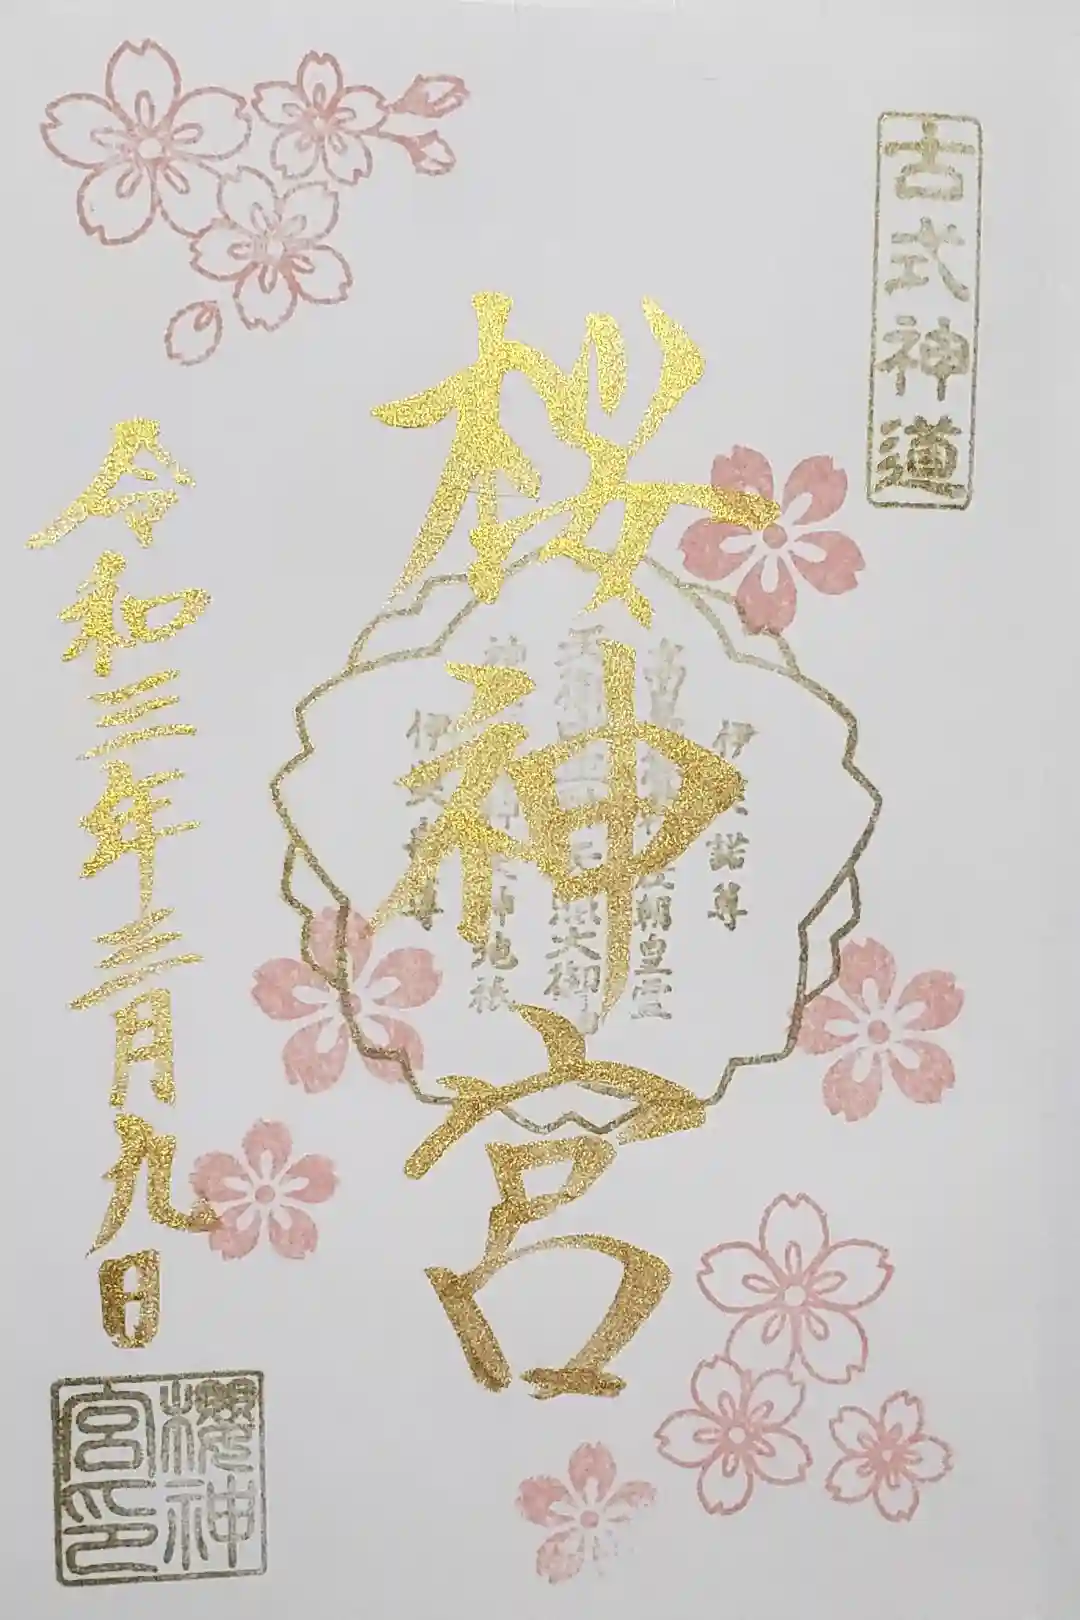 古式神道
桜神宮
伊弉諾尊
朝皇霊
照大御
神地祇
伊
尊
令和三年三月九日
櫻神
宮印